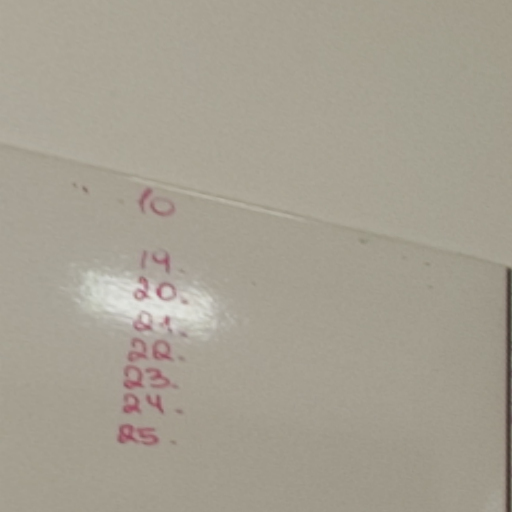 10
19.
20.
21.
22.
23.
24.
25.